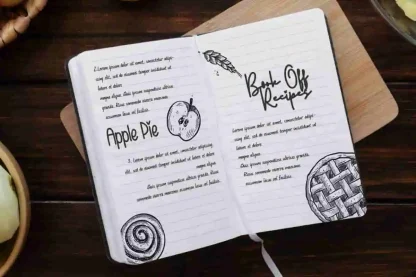 1. Lorem ipsum dolor sit amet, consectetur adipi-
cing elit, sed do eiusmod tempor incididunt ut
labore et dolore
magna aliqua. Quis ipsum suspendisse ultrices
gravida. Risus commodo viverra maecenas
accumsan lacus vel facilisis.
Apple Pie
2. Lorem ipsum dolor sit amet, consectetur adipiscing
elit, sed do eiusmod tempor incididunt ut labore
et dolore magna aliqua.
Quis ipsum suspendisse ultrices gravida. Risus
commodo viverra maecenas accumsan
lacus vel facilisis.
Book Off
Recipes
Lorem ipsum dolor sit amet, consectetur adipi
elit, sed do eiusmod tempor incididunt ut
labore et dolore
magna aliqua.
Quis ipsum suspendisse ultrices gravida. Risus
commodo viverra maecenas accumsan
lacus vel facilisis.